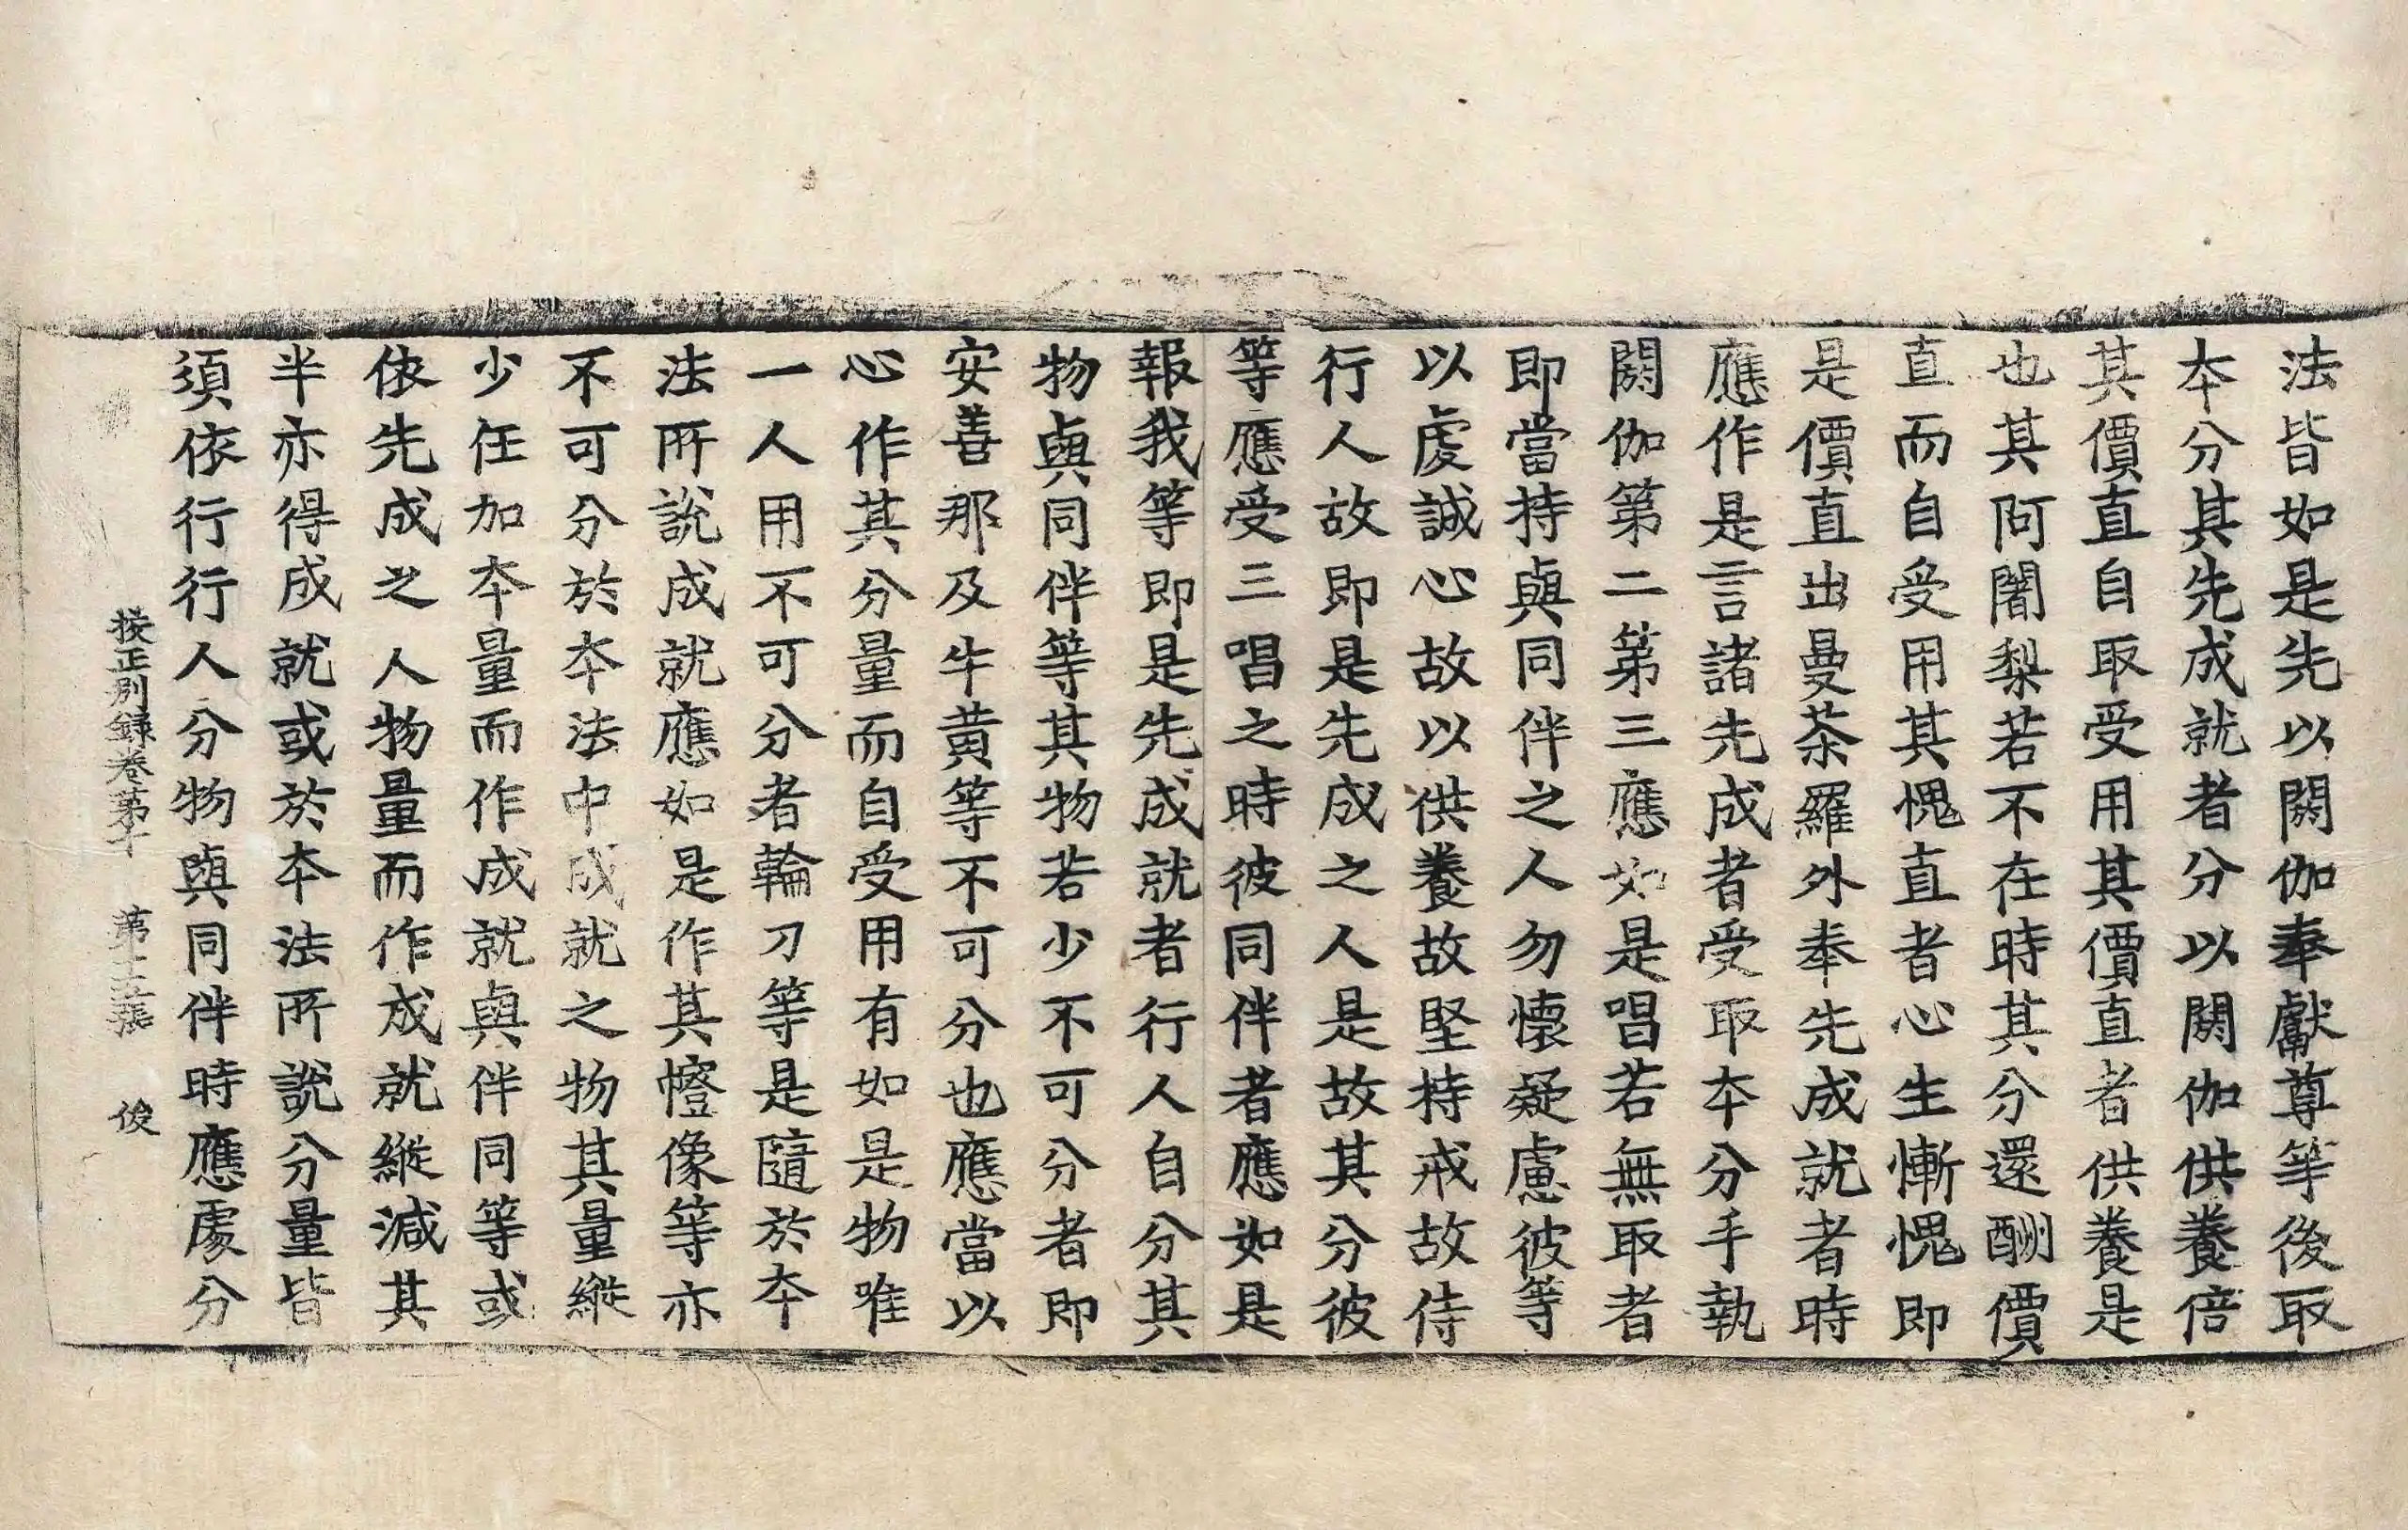 法皆如是先以閼伽奉獻尊等後取
本分其先成就者分以閼伽供養倍
其價直自取受用其價直者供養是
也其阿闍梨若不在時其分還酬價
直而自受用其愧直者心生慚愧即
是價直出曼荼羅外奉先成就者時
應作是言諸先成者受取本分手執
閼伽第二第三應如是唱若無取者
即當持與同伴之人勿懷疑慮彼等
以虔誠心故以供養故堅持戒故侍
行人故即是先成之人是故其分彼
等應受三唱之時彼同伴者應如是
報我等即是先成就者行人自分其
物與同伴等其物若少不可分者即
安善那及牛黃等不可分也應當以
心作其分量而自受用有如是物唯
一人用不可分者輪刀等是隨於本
法所說成就應如是作其幢像等亦
不可分於本法中成就之物其量縱
少任加本量而作成就與伴同等或
依先成之人物量而作成就縱減其
半亦得成就或於本法所說分量皆
須依行行人分物與同伴時應處分
挍正別錄卷第十 第十五張 俊